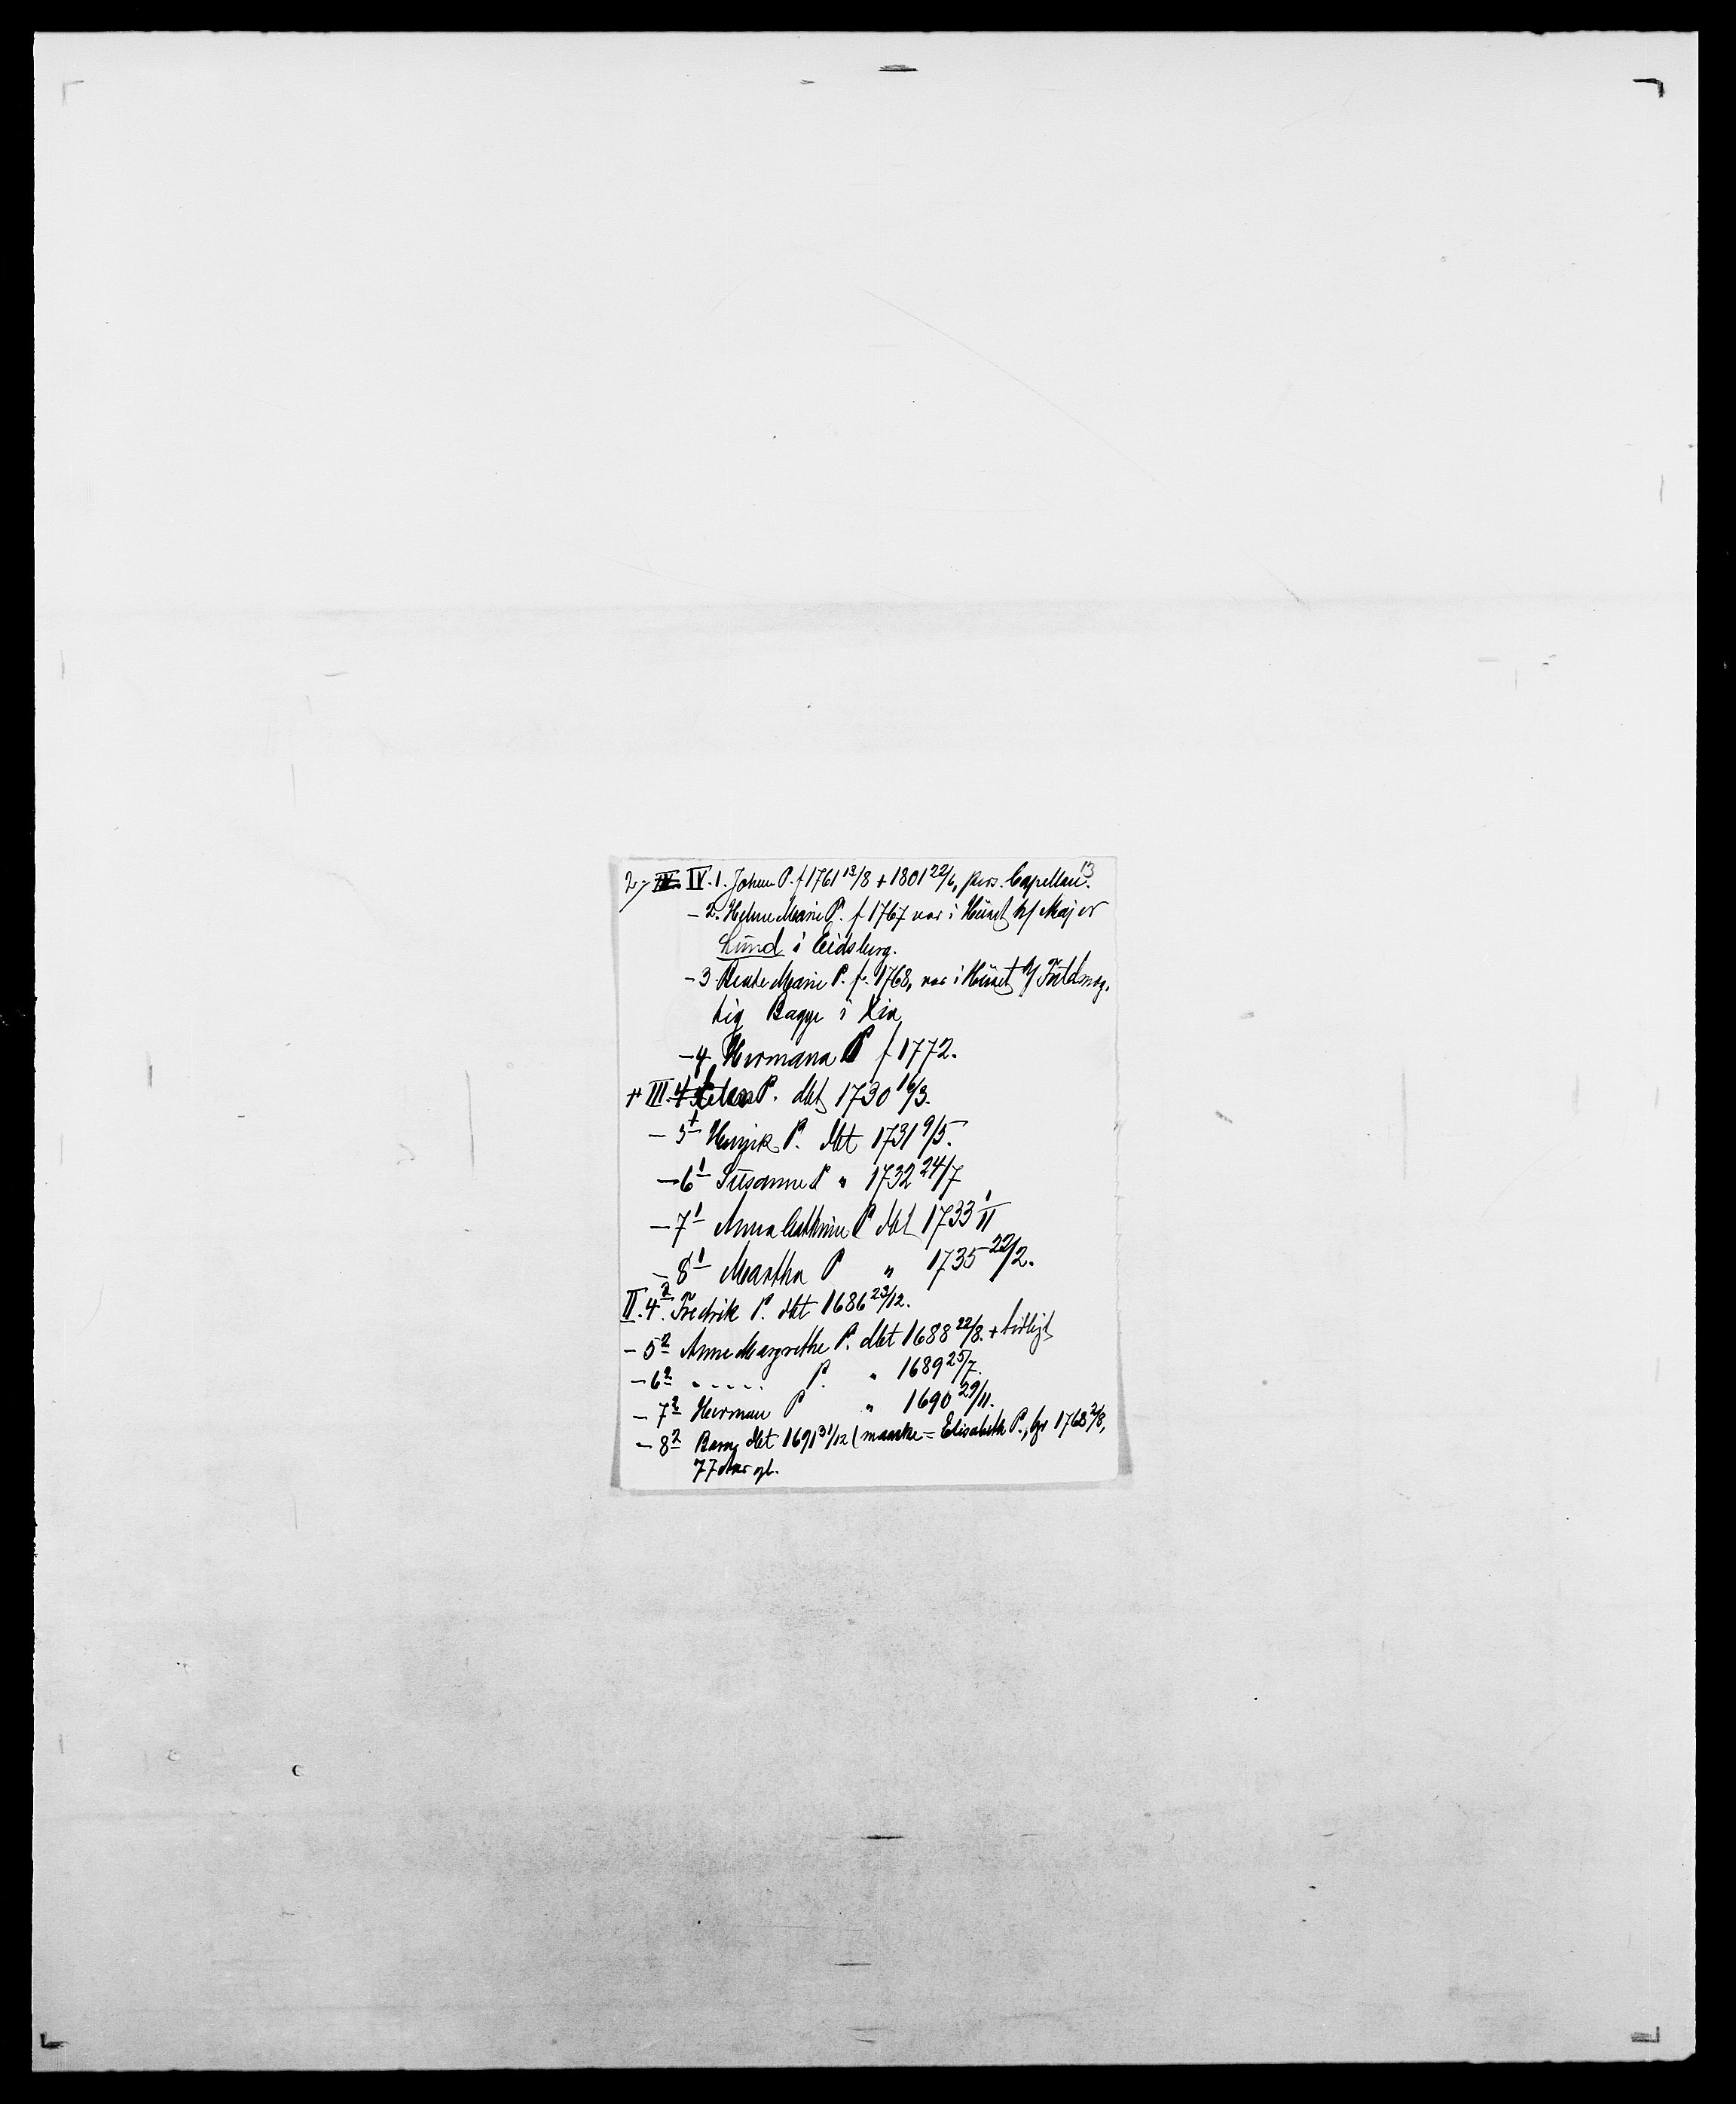 13
2) IV. 1. Johan P. f 1761 13/8 + 1801 22/6, pers. Capellan.
- 2. Helene Marie P. f 1767 var i Huset h/ Major
Lund i Eidsberg.
- 3. Beate Marie P. f. 1768, var i Huset h/ Feldmag.
tig Bagge i Xia
- 4. Hermana P f 1772.
+ III. 4 Peter P. dbt 1730 16/3.
- 5 1 Henrik P. dbt 1731 9/5.
- 6 1 Susanne P " 1732 24/7
- 7 1 Anna Cathrine P dbt 1733 1/11
- 8 1 Martha P " 1735 22/2.
II. 4 2. Fredrik P. dbt 1686 23/12.
- 5 2 Anne Margrethe P. dbt 1688 22/8. + tidligt
- 6 2 - - - - - P. " 1689 25/7.
- 7 2 Herman P " 1690 29/11.
- 8 2 Barn dbt 1691 31/12 (maaske = Elisabeth P., bgr 1768 2/8,
77 Aar gl.